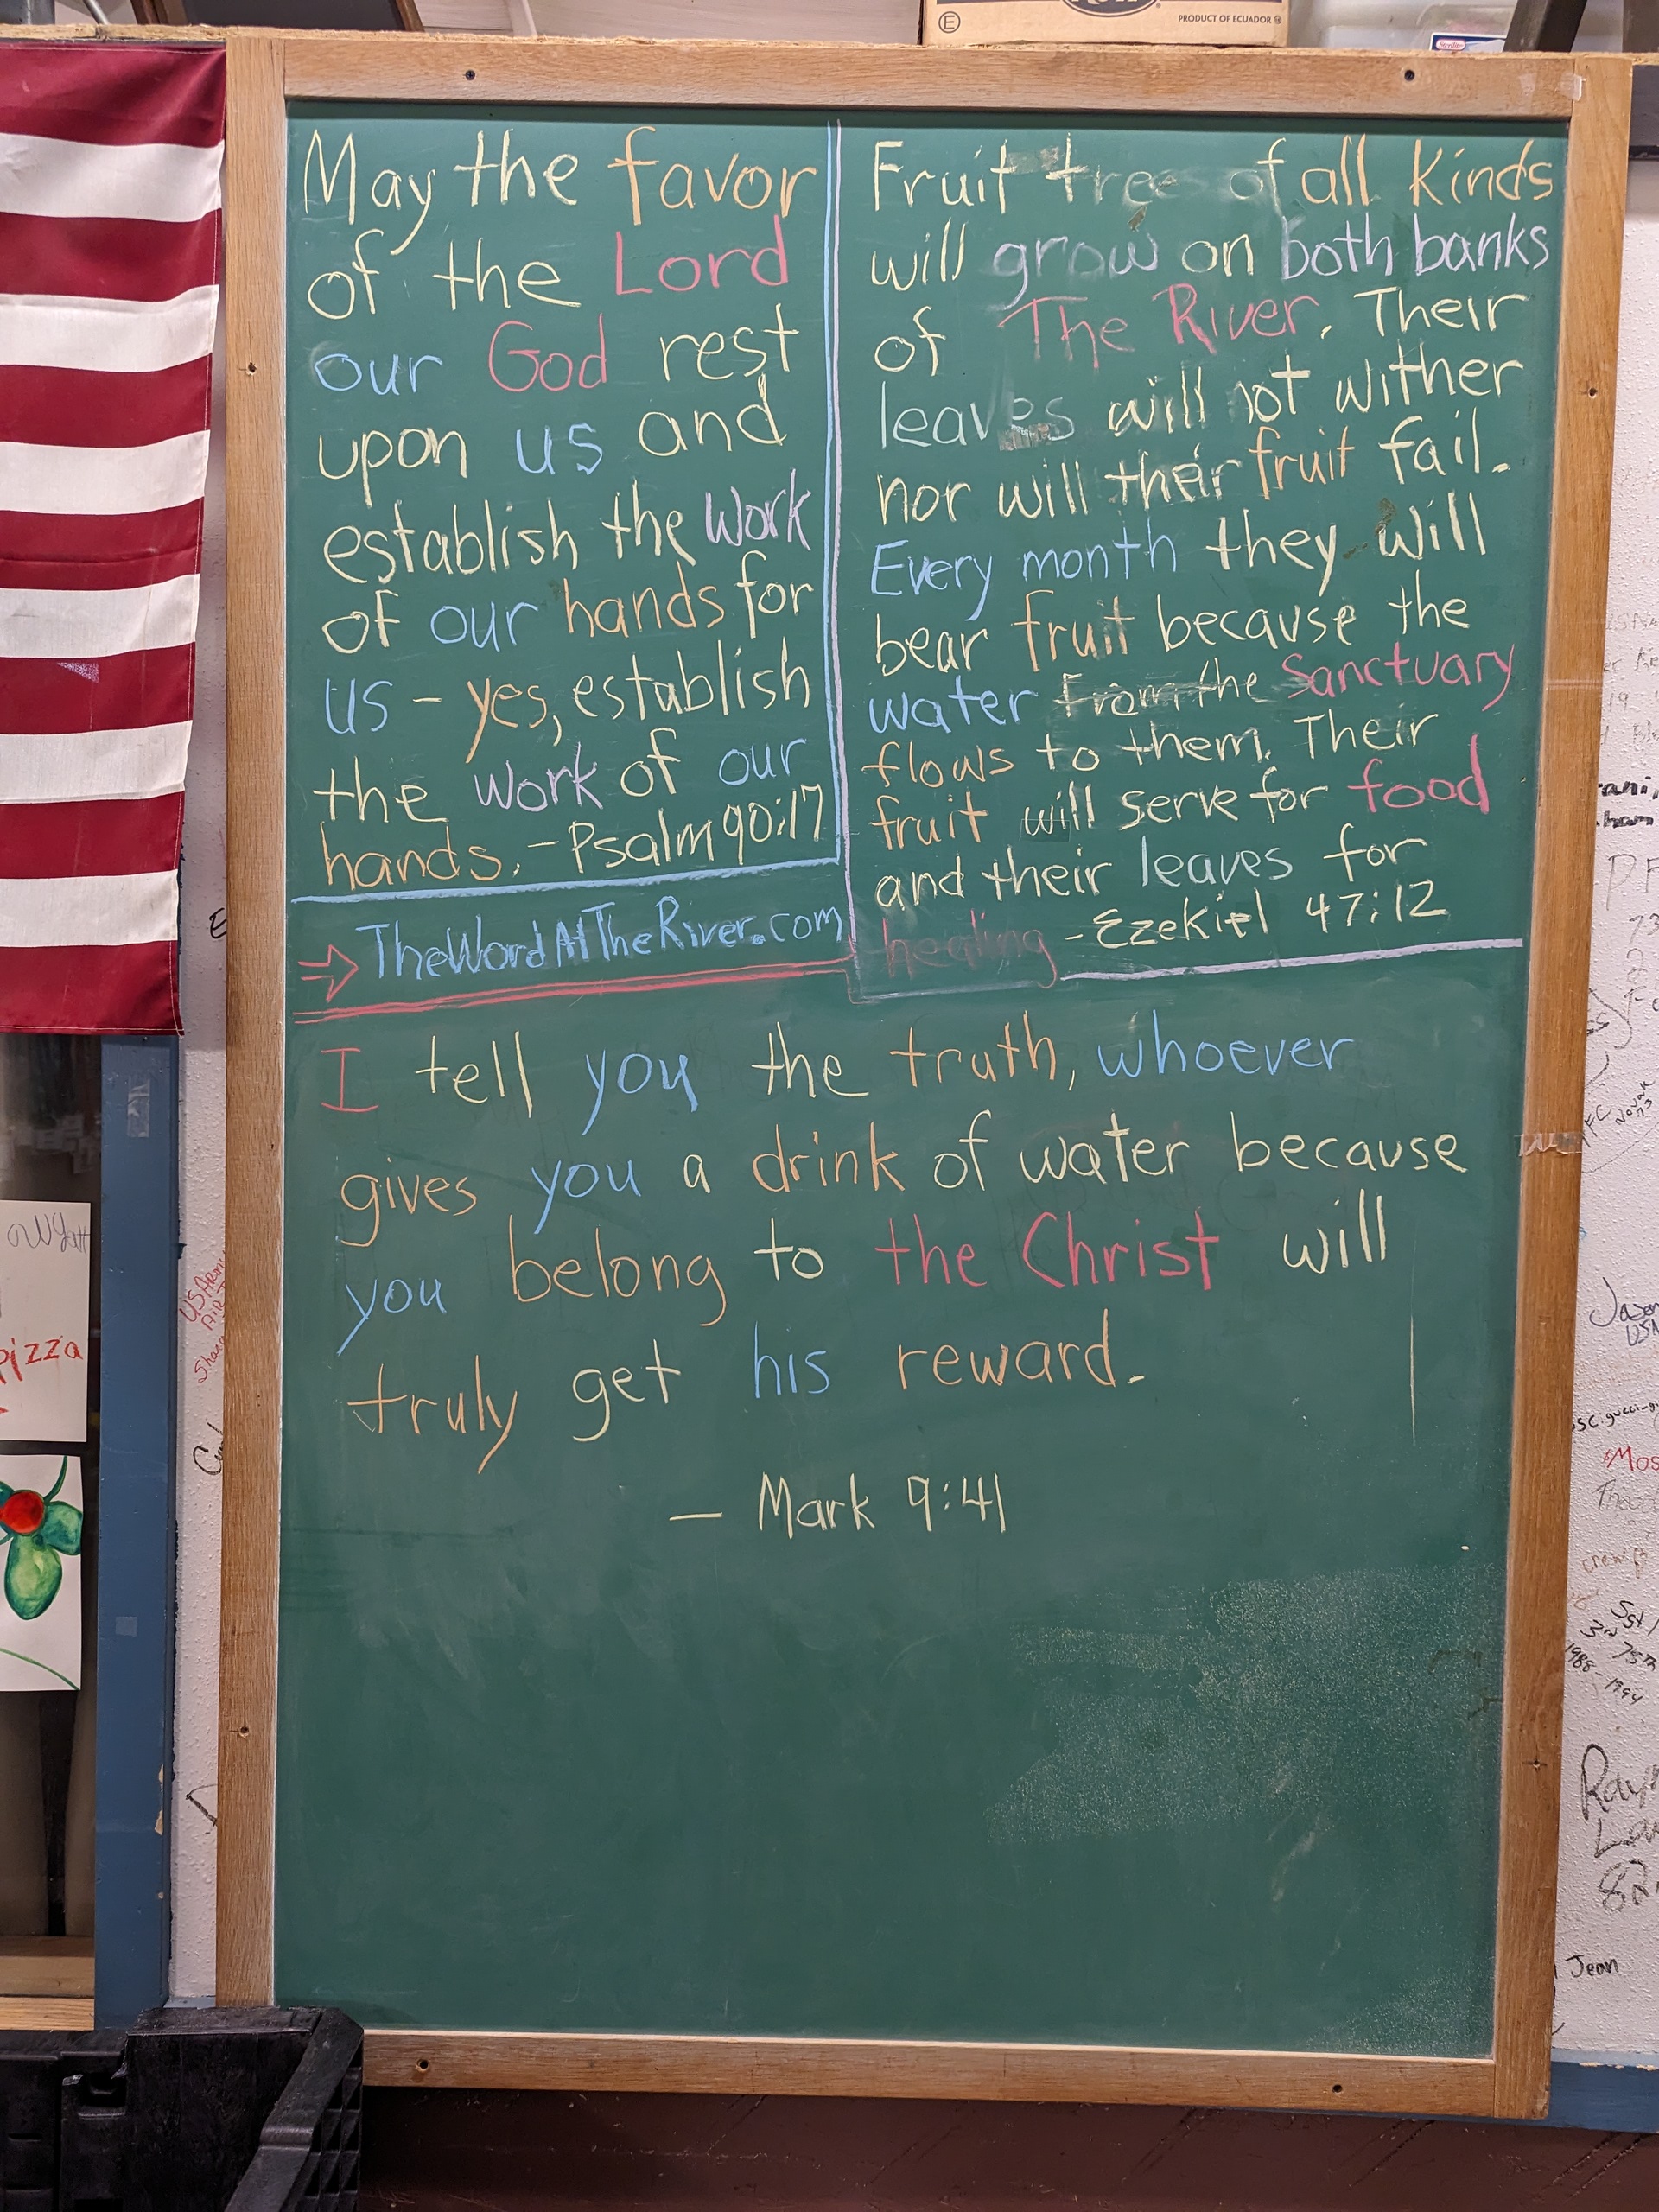 PRODUCT OF ECUADOR
May the favor
of the Lord
our God rest
upon us and
establish the work
of our hands for
us - yes, establish
the work of our
hands. - Psalm 90:17
TheWordAtTheRiver.com
Fruit trees of all kinds
will grow on both banks
of The River. Their
leaves will not wither
nor will their fruit fail.
Every month they will
bear fruit because the
water from the Sanctuary
flows to them. Their
fruit will serve for food
and their leaves for
healing - Ezekiel 47:12
I tell you the truth, whoever
gives you a drink of water because
you belong to the Christ will
truly get his reward.
— Mark 9:41
pizza
US Army
Jason
USN
1988-1994
Jean